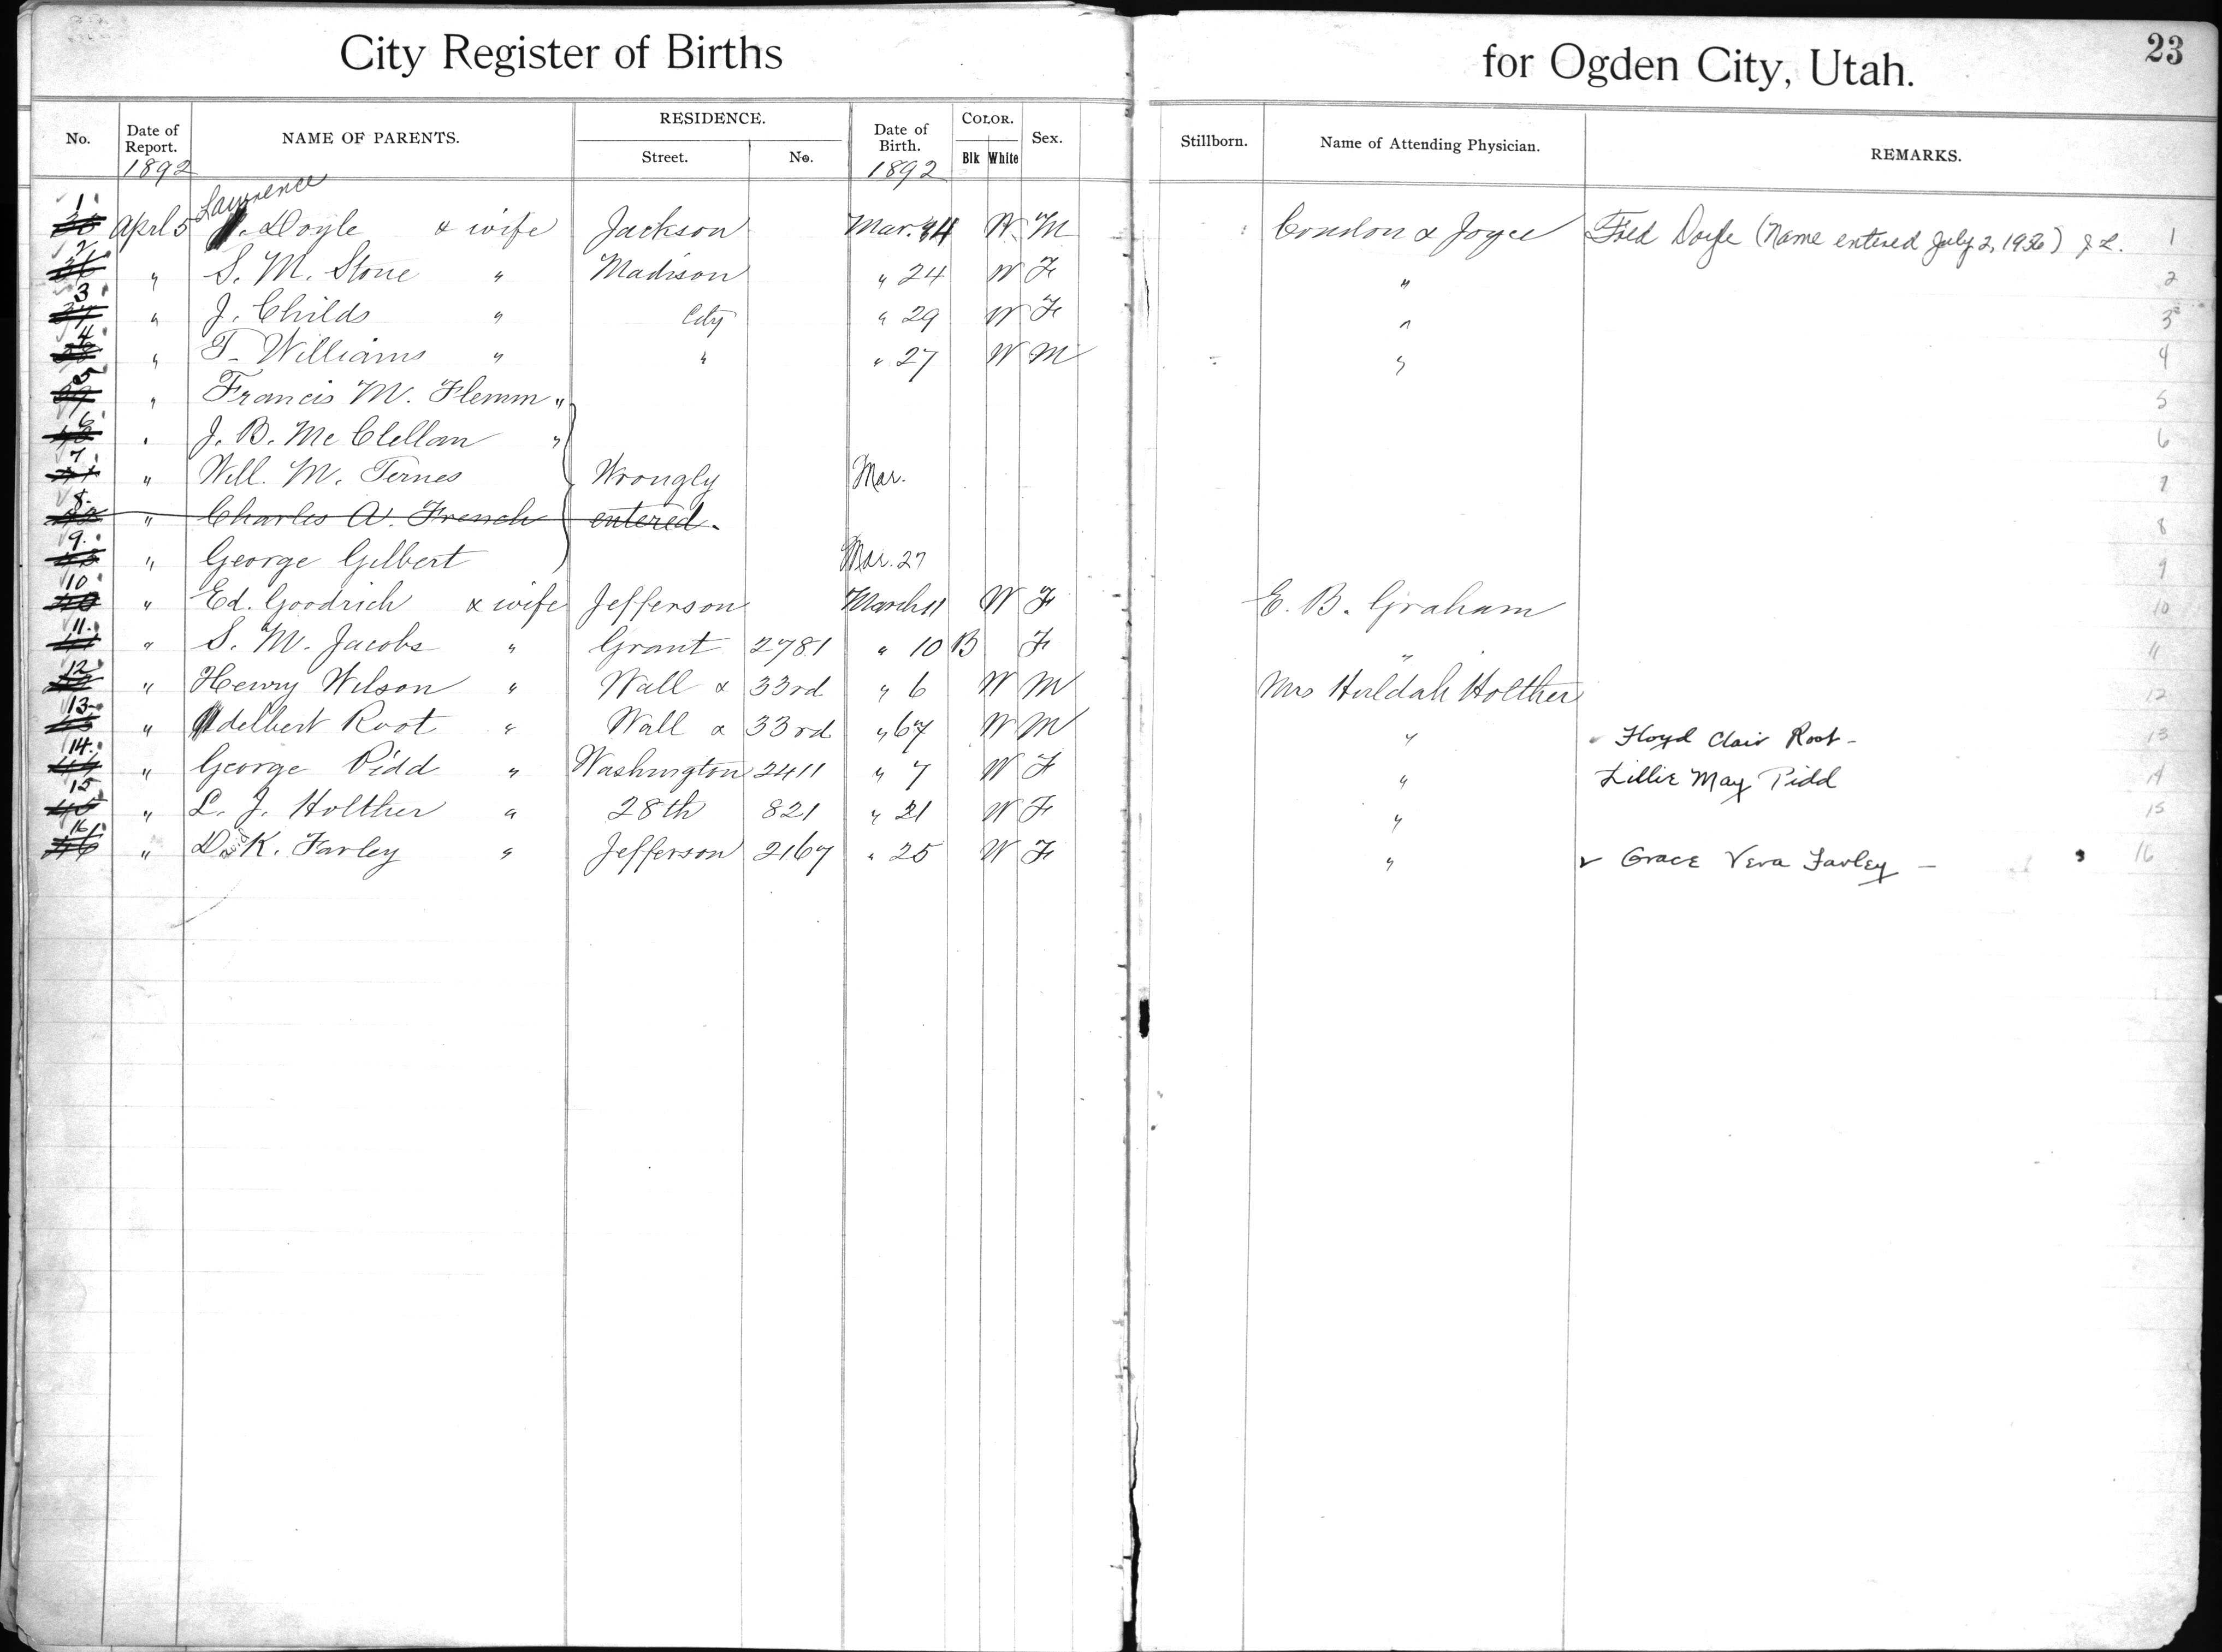 City Register of Births for Ogden City, Utah. 23
No. Date of Report. NAME OF PARENTS. RESIDENCE. Street. No. Date of Birth. COLOR. Blk White Sex. Stillborn. Name of Attending Physician. REMARKS.
1892 1892
Lawrence
1. April 5 Doyle & wife Jackson Mar. W. M Condon & Joyce Fred Doyle (Name entered July 2, 1936) 1
2. " S. M. Stone " Madison " 24 W F " 2
3. " J. Childs " City " 29 W F " 3
4. " T. Williams " " " 27 W M " 4
5. " Francis M. Flemm " 5
6. " J. B. McClellan " 6
7. " Will. M. Ternes Wrongly Mar. 7
8. " Charles A. French entered. 8
9. " George Gilbert Mar. 27 9
10. " Ed. Goodrich & wife Jefferson March 11 W F E. B. Graham 10
11. " S. M. Jacobs " Grant 2781 " 10 B F " 11
12. " Henry Wilson " Wall & 33rd " 6 W M Mrs Huldah Holther 12
13. " Adelbert Root " Wall & 33rd " 67 W M " Floyd Clair Root - 13
14. " George Pidd " Washington 2411 " 7 W F " Lillie May Pidd 14
15. " L. J. Holther " 28th 821 " 21 W F " 15
16. " David K. Farley " Jefferson 2167 " 25 W F " Grace Vera Farley - 16